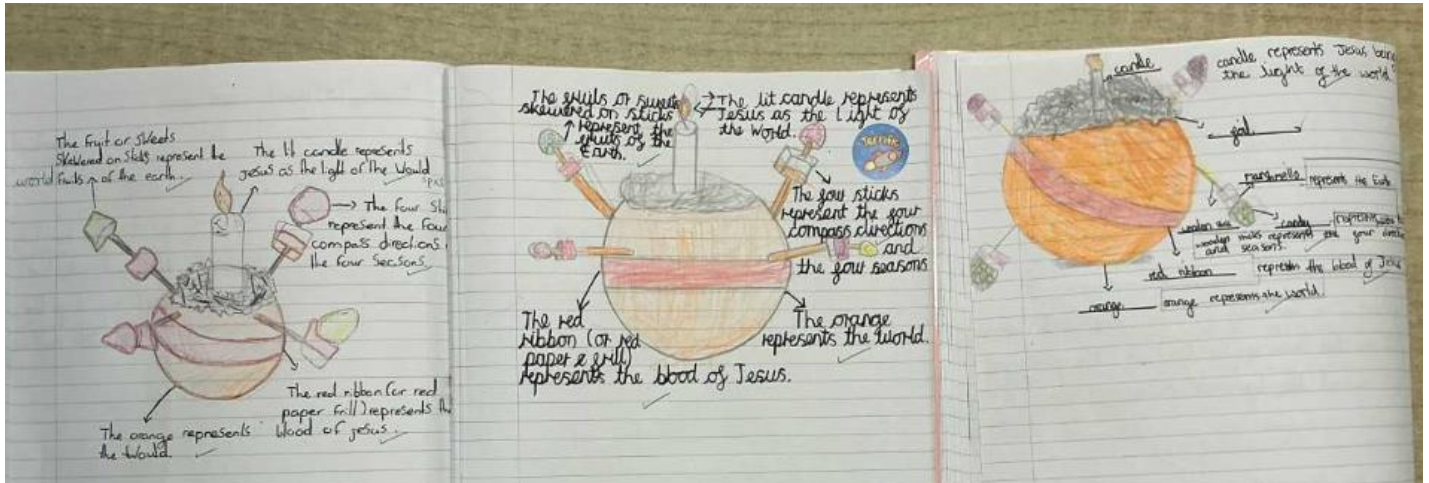 The fruit or sweets
skewered on sticks represent the
world fruits of the earth.
The lit candle represents
Jesus as the light of the Would
The four
represent the four
compass directions
the four Seasons
The red ribbon (or red
paper frill) represents the
blood of jesus.
The orange represents
the Would.
The fruits or sweets
skewered on sticks
represent the
fruits of the
Earth.
The lit candle represents
Jesus as the Light of
the World.
Terrific
The four sticks
represent the four
compass directions
and
the four seasons
The red
ribbon (or red
paper e frill)
represents the blood of Jesus.
The orange
represents the world.
candle
candle represents Jesus being
the light of the world.
foil
marshmello represents the
candy represents
wooden sticks represent the four
and seasons.
red ribbon represents the blood of Jesus
orange orange represents the world.